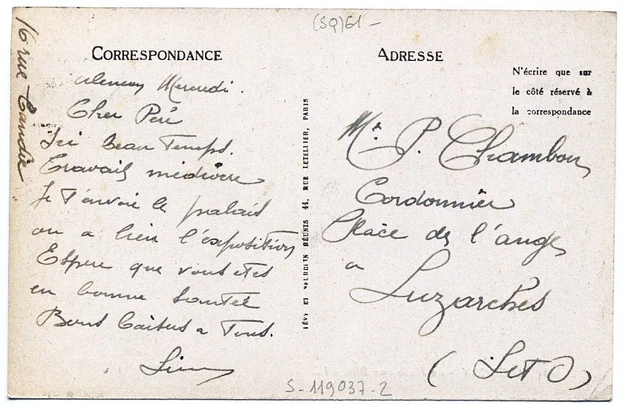 (SQ)61-
CORRESPONDANCE
Mercredi.
Cher Père
Ici Beau Temps.
Travail médiocre
Je t'envoi le palais
ou a lieu l'exposition
Espere que vous etes
en bonne Santée
Bons a Tous.
16 rue
LÉVY ET NEURDEIN RÉUNIS 44, RUE LETELLIER, PARIS
ADRESSE
N'écrire que sur
le côté réservé à
la correspondance
Mr P. Chambon
Cordonnier
Place de l'ange
a
Luzarches
(S et O)
S-119037-2